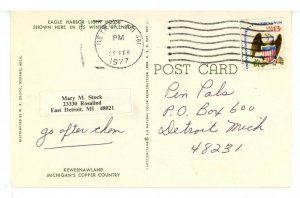 EAGLE HARBOR LIGHT HOUSE
SHOWN HERE IN ITS WINTER SPLENDOR
PM
25 FEB
1977
13¢
POST CARD
Mary M. Stock
23330 Rosalind
East Detroit, MI 48021
go after then
Pin Pals
P.O. Box 600
Detroit Mich
48231
KEWEENAWLAND
MICHIGAN'S COPPER COUNTRY